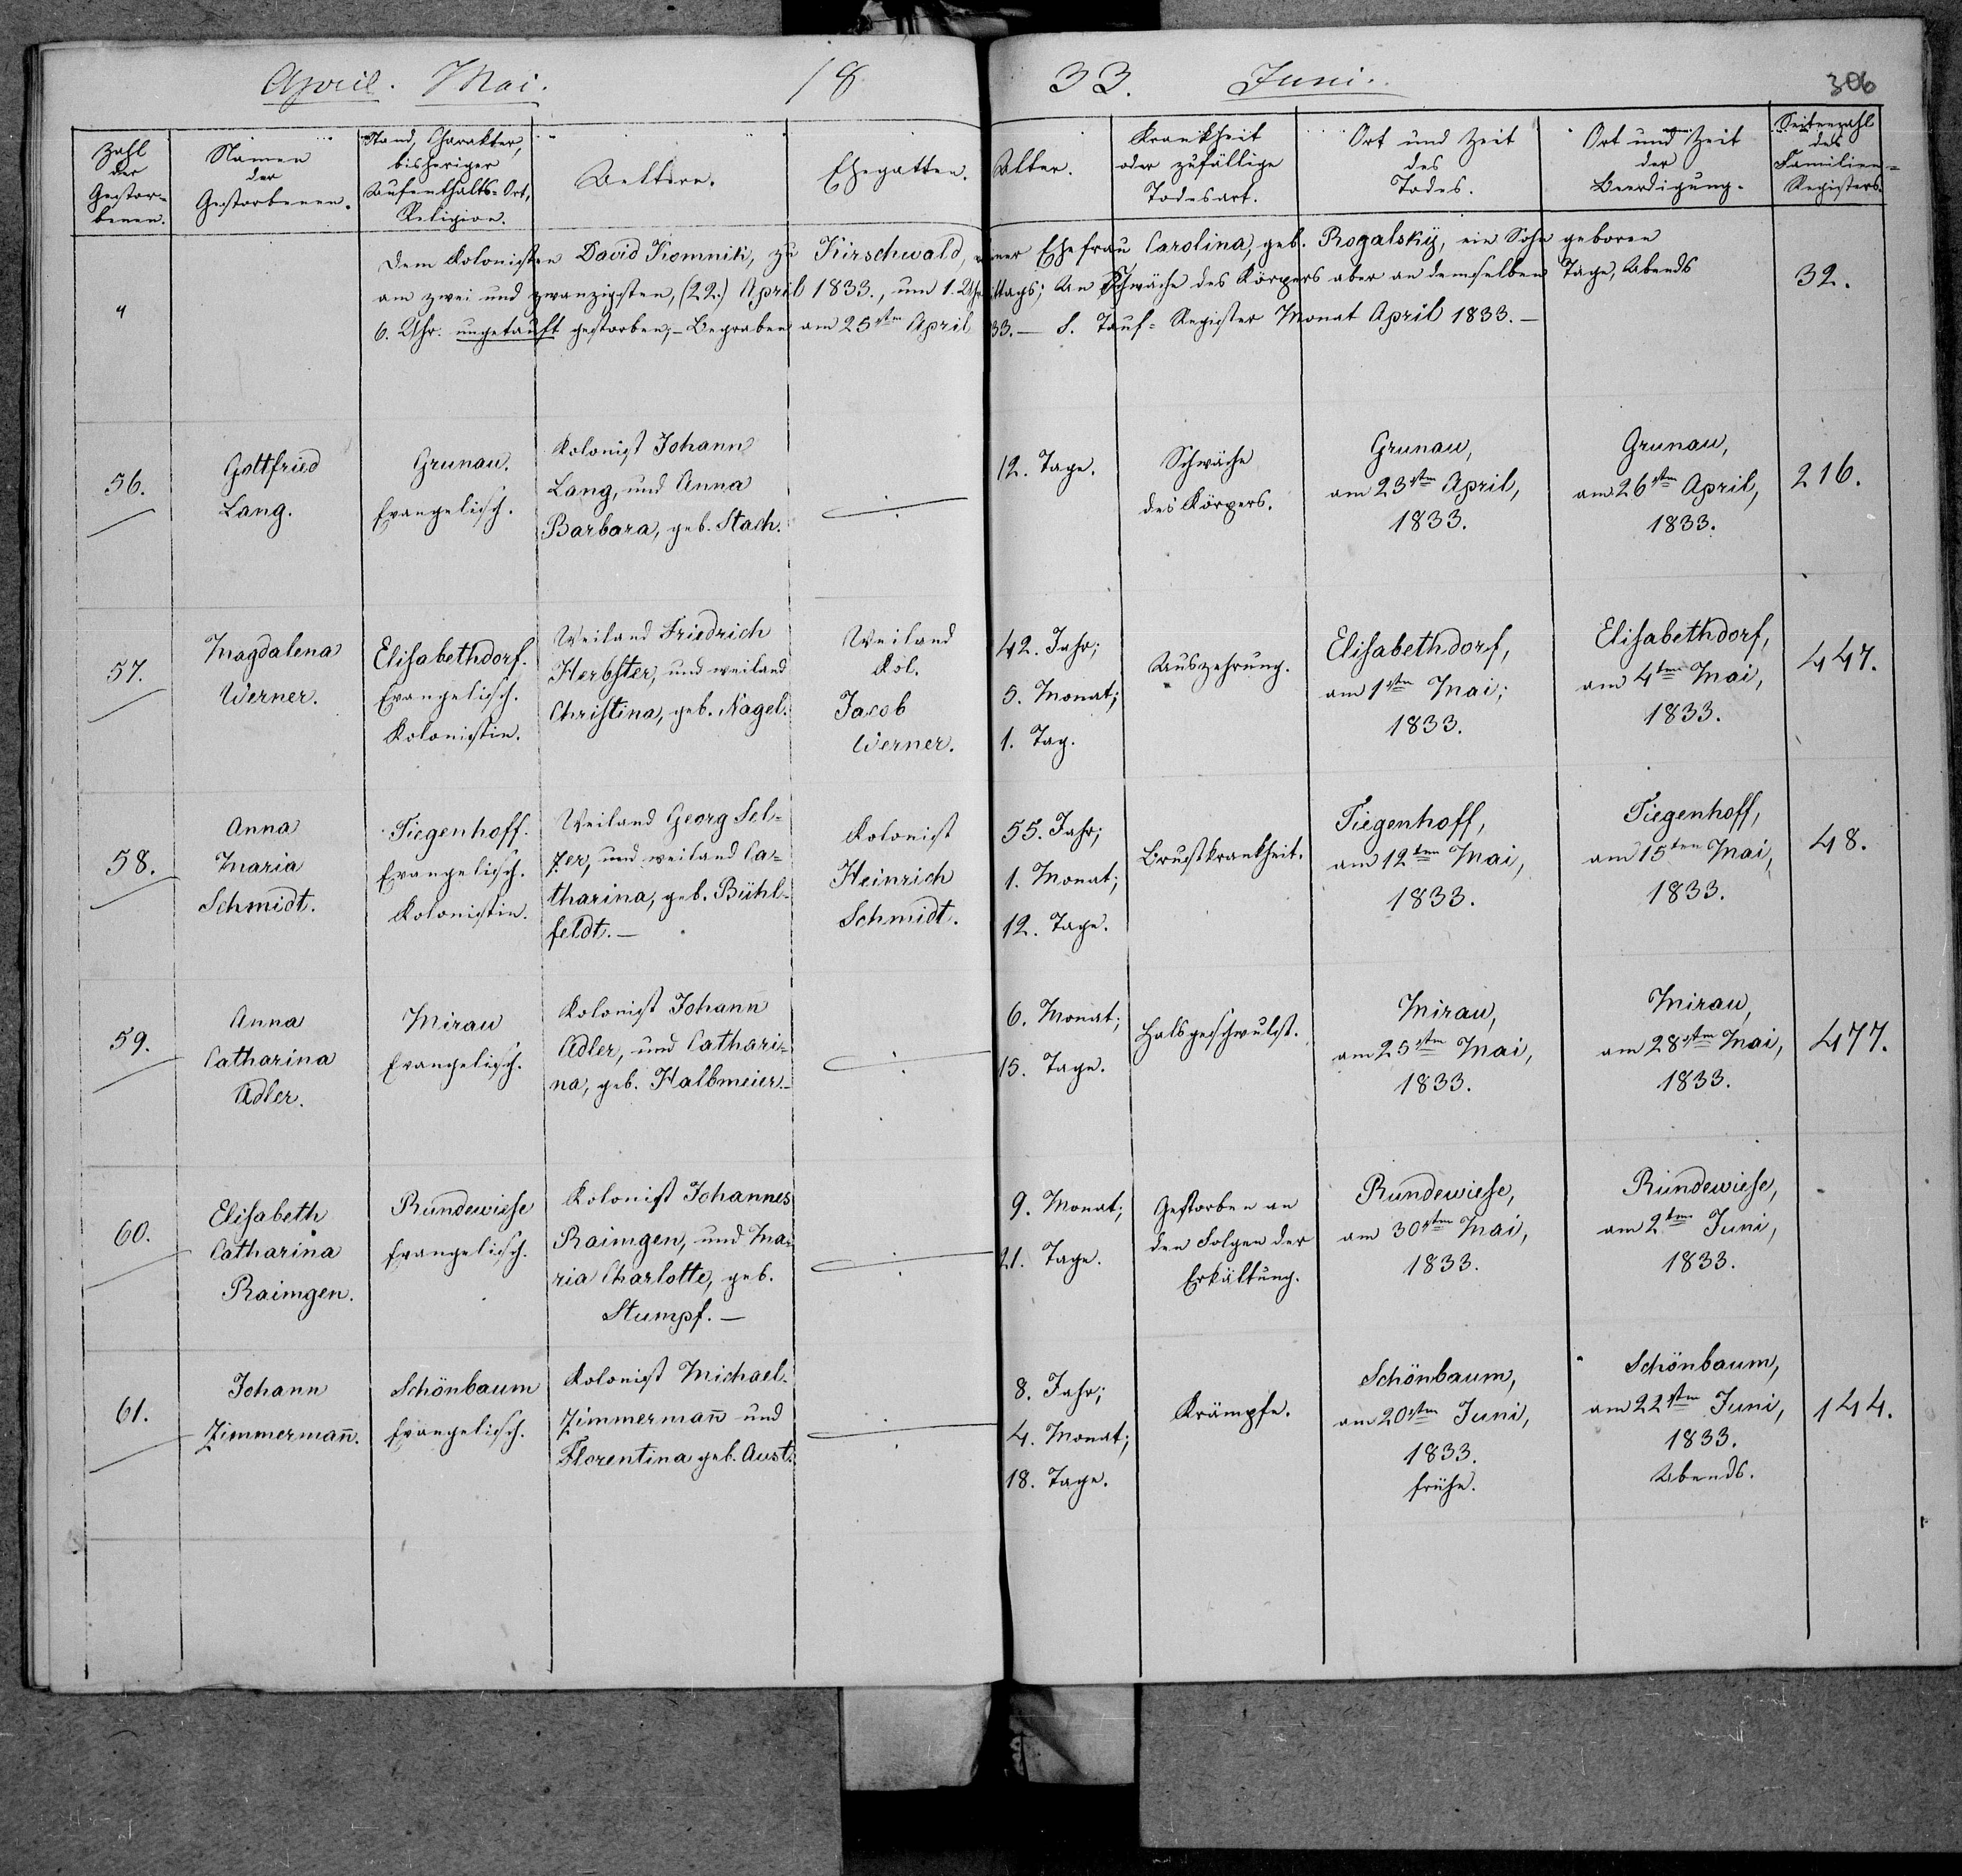 April. Mai. 18 33. Juni. 306
Zahl
der
Gestor-
benen.
Namen
der
Gestorbenen.
Stand, Charakter,
bisheriger
Aufenthalts-Ort,
Religion.
Aeltern.
Ehegatten.
Alter.
Krankheit
oder zufällige
Todesart.
Ort und Zeit
des
Todes.
Ort und Zeit
der
Beerdigung.
Seitenzahl
des
Familien-
Registers.
"
Dem Kolonisten David Komnik, zu Kirschwald, Ehefrau Carolina, geb. Rogalskÿ, ein Sohn geboren
am zwei und zwanzigsten, (22.) April 1833., um 1. Uhr An Schwäche des Körpers aber an demselben Tage, Abends
6. Uhr. ungetauft gestorben; – Begraben am 25sten April 33. – S. Tauf-Register Monat April 1833. –
32.
56.
Gottfried
Lang.
Grunau.
Evangelisch.
Kolonist Johann
Lang, und Anna
Barbara, geb. Stach.
12. Tage.
Schwäche
des Körpers.
Grunau,
am 23sten April,
1833.
Grunau,
am 26sten April,
1833.
216.
57.
Magdalena
Werner.
Elisabethdorf.
Evangelisch.
Kolonistin.
Weiland Friedrich
Herbster, und weiland
Christina, geb. Nagel.
Weiland
Kol.
Jacob
Werner.
42. Jahr;
5. Monat;
1. Tag.
Auszehrung.
Elisabethdorf,
am 1sten Mai;
1833.
Elisabethdorf,
am 4ten Mai,
1833.
447.
58.
Anna
Maria
Schmidt.
Tiegenhoff.
Evangelisch.
Kolonistin.
Weiland Georg Sel-
zer, und weiland Ca-
tharina, geb. Bühl-
feldt. –
Kolonist
Heinrich
Schmidt.
55. Jahr;
1. Monat;
12. Tage.
Brustkrankheit.
Tiegenhoff,
am 12ten Mai,
1833.
Tiegenhoff,
am 15ten Mai,
1833.
48.
59.
Anna
Catharina
Adler.
Mirau
Evangelisch.
Kolonist Johann
Adler, und Cathari-
na, geb. Halbmeier. –
6. Monat;
15. Tage.
Halsgeschwulst.
Mirau,
am 25sten Mai,
1833.
Mirau,
am 28sten Mai,
1833.
477.
60.
Elisabeth
Catharina
Raimgen.
Rundewiese
Evangelisch.
Kolonist Johannes
Raimgen, und Ma-
ria Charlotte, geb.
Stumpf. –
9. Monat;
21. Tage.
Gestorben an
den Folgen der
Erkältung.
Rundewiese,
am 30sten Mai,
1833.
Rundewiese,
am 2ten Juni,
1833.
61.
Johann
Zimmermañ.
Schönbaum
Evangelisch.
Kolonist Michael
Zimmermañ und
Florentina geb. Aust.
8. Jahr;
4. Monat;
18. Tage.
Krämpfe.
Schönbaum,
am 20sten Juni,
1833.
frühe.
Schönbaum,
am 22sten Juni,
1833.
Abends.
144.